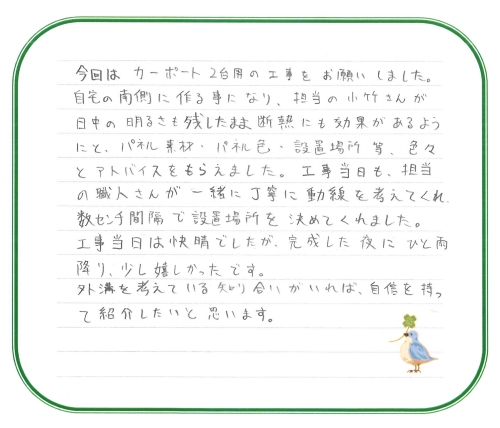 今回は カーポート 2台用の工事を お願いしました。
自宅の南側に作る事になり、担当の小竹さんが
日中の明るさも残したまま断熱にも効果があるよう
にと、パネル素材・パネル色・設置場所 等、色々
とアドバイスをもらえました。工事当日も、担当
の職人さんが一緒に丁寧に動線を考えてくれ、
数センチ間隔で設置場所を決めてくれました。
工事当日は快晴でしたが、完成した夜にひと雨
降り、少し嬉しかったです。
外溝を考えている知り合いがいれば、自信を持っ
て紹介したいと思います。